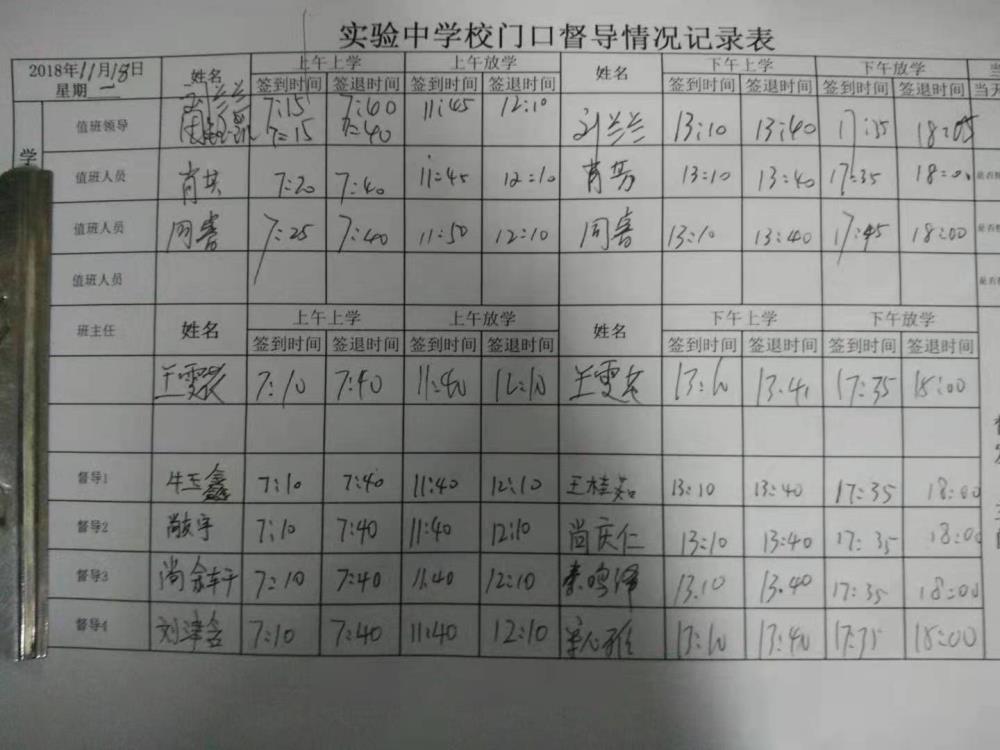 实验中学校门口督导情况记录表
2018年11月18日 姓名 上午上学 上午放学 姓名 下午上学 下午放学 当
星期一 签到时间 签退时间 签到时间 签退时间 签到时间 签退时间 签到时间 签退时间 当天
学
刘兰兰 7:15 7:40 11:45 12:10
值班领导 7:15 7:40 刘兰兰 13:10 13:40 17:35 18:05
值班人员 肖芳 7:20 7:40 11:45 12:10 肖芳 13:10 13:40 17:35 18:00 是否
值班人员 周睿 7:25 7:40 11:50 12:10 周睿 13:10 13:40 17:45 18:00 是否
值班人员 是否
班主任 姓名 上午上学 上午放学 姓名 下午上学 下午放学
签到时间 签退时间 签到时间 签退时间 签到时间 签退时间 签到时间 签退时间
7:10 7:40 11:40 12:10 13:10 13:41 17:35 18:00
督导1 牛玉鑫 7:10 7:40 11:40 12:10 王桂茹 13:10 13:40 17:35 18:00
督导2 7:10 7:40 11:40 12:10 尚庆仁 13:10 13:40 17:35 18:00
督导3 7:10 7:40 11:40 12:10 秦鸣泽 13.10 13.40 17:35 18:00
督导4 刘津含 7:10 7:40 11:40 12:10 13:10 13:40 17:35 18:00